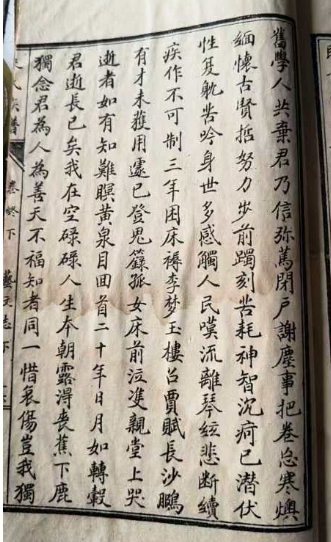 舊學人共棄君乃信弥篤閉戶謝塵事把卷忘寒燠
緬懷古賢哲努力步前躅刻苦耗神智沉疴已潛伏
性复躭苦吟身世多感觸人民嘆流離琴絃悲斷續
疾作不可制三年困床褥李梦玉樓召賈賦長沙鵩
有才未獲用遽已登鬼籙孤女床前泣隻親堂上哭
逝者如有知難瞑黃泉目回首二十年日月如轉轂
君逝長已矣我在空碌碌人生本朝露得喪蕉下鹿
獨念君為人為善天不福知者同一惜哀傷豈我獨
卷終下
藝文志下